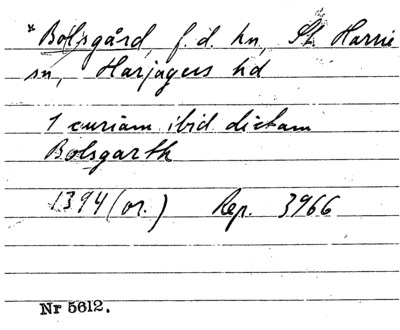 *Bolsgård, f.d. hn, St. Harrie
sn, Harjagers hd
1 curiam ibid dictam
Bolsgarth
1394 (or.) Rep. 3966
Nr 5612.